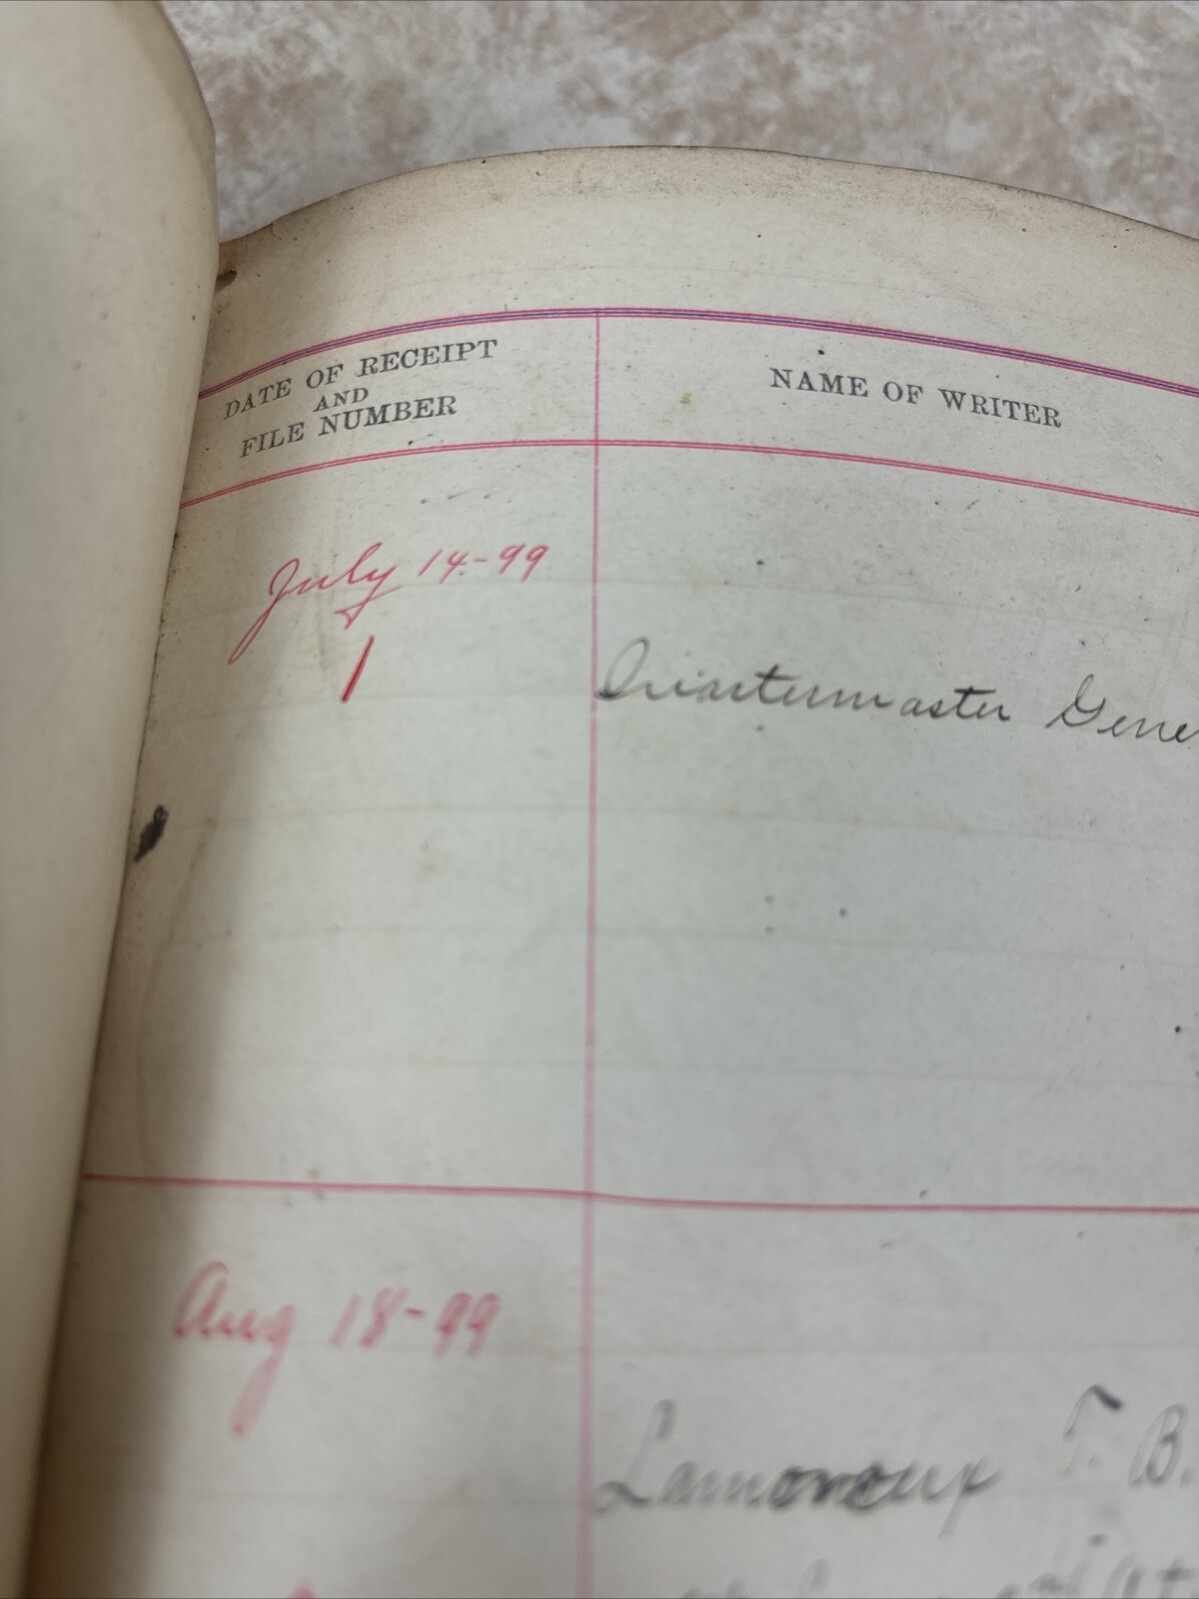 DATE OF RECEIPT
AND
FILE NUMBER
NAME OF WRITER
July 14-99
1
Quartermaster Gene
Aug 18-99
Lamoreux T. B.